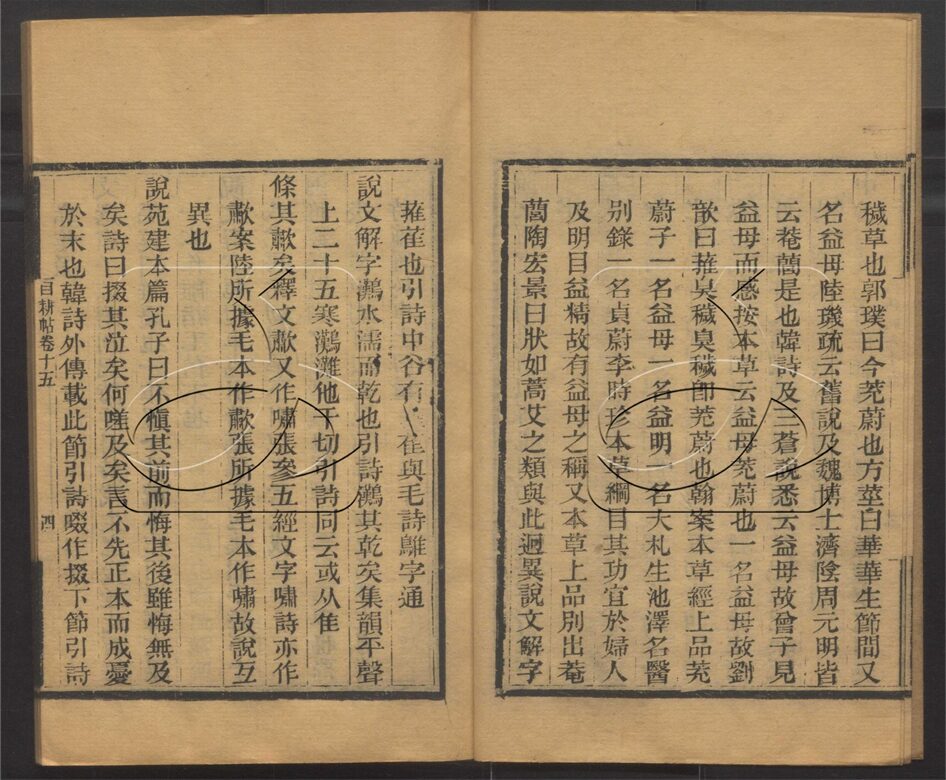 穢草也郭璞曰今茺蔚也方莖白華華生節間又
名益母陸璣疏云舊說及魏博士濟陰周元明皆
云菴䕡是也韓詩及三蒼說悉云益母故曾子見
益母而感按本草云益母茺蔚也一名益母故劉
歆曰蓷臭穢臭穢卽茺蔚也翰案本草經上品茺
蔚子一名益母一名益明一名大札生池澤名醫
別錄一名貞蔚李時珍本草綱目其功宜於婦人
及明目益精故有益母之稱又本草上品別出菴
䕡陶宏景曰狀如蒿艾之類與此迥異說文解字
蓷萑也引詩中谷有 萑與毛詩鵻字通
說文解字灘水濡而乾也引詩灘其乾矣集韻平聲
上二十五寒灘灘他干切引詩同云或从隹
條其歗矣釋文歗又作嘯張參五經文字嘯詩亦作
歗案陸所據毛本作歗張所據毛本作嘯故說互
異也
說苑建本篇孔子曰不愼其前而悔其後雖悔無及
矣詩曰掇其泣矣何嗟及矣言不先正本而成憂
於末也韓詩外傳載此節引詩啜作掇下節引詩
目耕帖卷十五
四